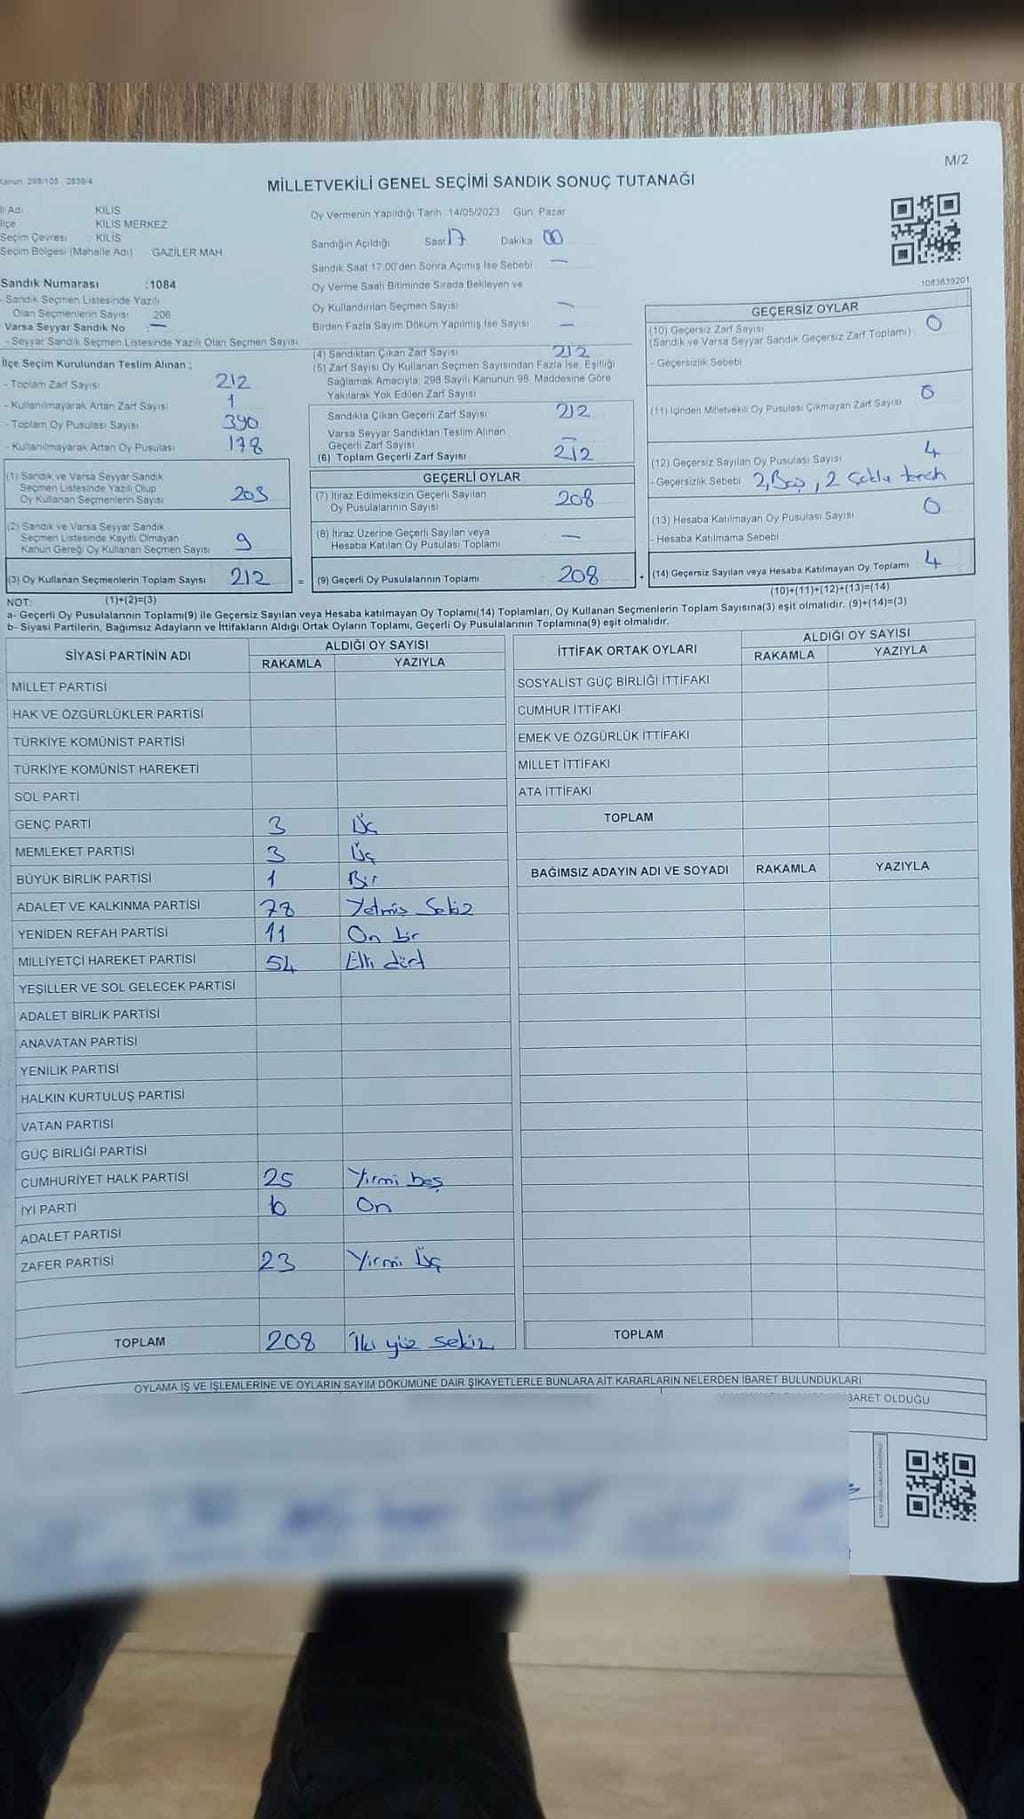 M/2
Kanun: 298/105 - 2839/4
MİLLETVEKİLİ GENEL SEÇİMİ SANDIK SONUÇ TUTANAĞI
İl Adı KİLİS
İlçe KİLİS MERKEZ
Seçim Çevresi KİLİS
Seçim Bölgesi (Mahalle Adı) GAZİLER MAH
Sandık Numarası :1084
- Sandık Seçmen Listesinde Yazılı
Olan Seçmenlerin Sayısı 206
Varsa Seyyar Sandık No : —
- Seyyar Sandık Seçmen Listesinde Yazılı Olan Seçmen Sayısı
Oy Vermenin Yapıldığı Tarih 14/05/2023 Gün: Pazar
Sandığın Açıldığı Saat 17 Dakika 00
Sandık Saat 17:00'den Sonra Açımış İse Sebebi —
Oy Verme Saati Bitiminde Sırada Bekleyen ve
Oy Kullandırılan Seçmen Sayısı —
Birden Fazla Sayım Döküm Yapılmış İse Sayısı —
1083639201
İlçe Seçim Kurulundan Teslim Alınan ;
- Toplam Zarf Sayısı 212
- Kullanılmayarak Artan Zarf Sayısı 1
- Toplam Oy Pusulası Sayısı 390
- Kullanılmayarak Artan Oy Pusulası 178
(1) Sandık ve Varsa Seyyar Sandık
Seçmen Listesinde Yazılı Olup
Oy Kullanan Seçmenlerin Sayısı 203
(2) Sandık ve Varsa Seyyar Sandık
Seçmen Listesinde Kayıtlı Olmayan
Kanun Gereği Oy Kullanan Seçmen Sayısı 9
(3) Oy Kullanan Seçmenlerin Toplam Sayısı 212 =
(1)+(2)=(3)
(4) Sandıktan Çıkan Zarf Sayısı 212
(5) Zarf Sayısı Oy Kullanan Seçmen Sayısından Fazla İse, Eşitliği
Sağlamak Amacıyla, 298 Sayılı Kanunun 98. Maddesine Göre
Yakılarak Yok Edilen Zarf Sayısı
Sandıkla Çıkan Geçerli Zarf Sayısı 212
Varsa Seyyar Sandıktan Teslim Alınan
Geçerli Zarf Sayısı —
(6) Toplam Geçerli Zarf Sayısı 212
GEÇERLİ OYLAR
(7) İtiraz Edilmeksizin Geçerli Sayılan
Oy Pusulalarının Sayısı 208
(8) İtiraz Üzerine Geçerli Sayılan veya
Hesaba Katılan Oy Pusulası Toplamı —
(9) Geçerli Oy Pusulalarının Toplamı 208 +
GEÇERSİZ OYLAR
(10) Geçersiz Zarf Sayısı
(Sandık ve Varsa Seyyar Sandık Geçersiz Zarf Toplamı) : 0
- Geçersizlik Sebebi
(11) İçinden Milletvekili Oy Pusulası Çıkmayan Zarf Sayısı 0
(12) Geçersiz Sayılan Oy Pusulası Sayısı 4
- Geçersizlik Sebebi 2 Boş, 2 Çoklu tercih
(13) Hesaba Katılmayan Oy Pusulası Sayısı 0
- Hesaba Katılmama Sebebi
(14) Geçersiz Sayılan veya Hesaba Katılmayan Oy Toplamı 4
(10)+(11)+(12)+(13)=(14)
NOT:
a- Geçerli Oy Pusulalarının Toplamı(9) ile Geçersiz Sayılan veya Hesaba katılmayan Oy Toplamı(14) Toplamları, Oy Kullanan Seçmenlerin Toplam Sayısına(3) eşit olmalıdır. (9)+(14)=(3)
b- Siyasi Partilerin, Bağımsız Adayların ve İttifakların Aldığı Ortak Oyların Toplamı, Geçerli Oy Pusulalarının Toplamına(9) eşit olmalıdır.
SİYASİ PARTİNİN ADI ALDIĞI OY SAYISI
RAKAMLA YAZIYLA
MİLLET PARTİSİ
HAK VE ÖZGÜRLÜKLER PARTİSİ
TÜRKİYE KOMÜNİST PARTİSİ
TÜRKİYE KOMÜNİST HAREKETİ
SOL PARTİ
GENÇ PARTİ 3 Üç
MEMLEKET PARTİSİ 3 Üç
BÜYÜK BİRLİK PARTİSİ 1 Bir
ADALET VE KALKINMA PARTİSİ 78 Yetmiş Sekiz
YENİDEN REFAH PARTİSİ 11 On bir
MİLLİYETÇİ HAREKET PARTİSİ 54 Elli dört
YEŞİLLER VE SOL GELECEK PARTİSİ
ADALET BİRLİK PARTİSİ
ANAVATAN PARTİSİ
YENİLİK PARTİSİ
HALKIN KURTULUŞ PARTİSİ
VATAN PARTİSİ
GÜÇ BİRLİĞİ PARTİSİ
CUMHURİYET HALK PARTİSİ 25 Yirmi beş
İYİ PARTİ 10 On
ADALET PARTİSİ
ZAFER PARTİSİ 23 Yirmi Üç
TOPLAM 208 İki yüz sekiz
İTTİFAK ORTAK OYLARI ALDIĞI OY SAYISI
RAKAMLA YAZIYLA
SOSYALİST GÜÇ BİRLİĞİ İTTİFAKI
CUMHUR İTTİFAKI
EMEK VE ÖZGÜRLÜK İTTİFAKI
MİLLET İTTİFAKI
ATA İTTİFAKI
TOPLAM
BAĞIMSIZ ADAYIN ADI VE SOYADI RAKAMLA YAZIYLA
TOPLAM
OYLAMA İŞ VE İŞLEMLERİNE VE OYLARIN SAYIM DÖKÜMÜNE DAİR ŞİKAYETLERLE BUNLARA AİT KARARLARIN NELERDEN İBARET BULUNDUKLARI
BARET OLDUĞU